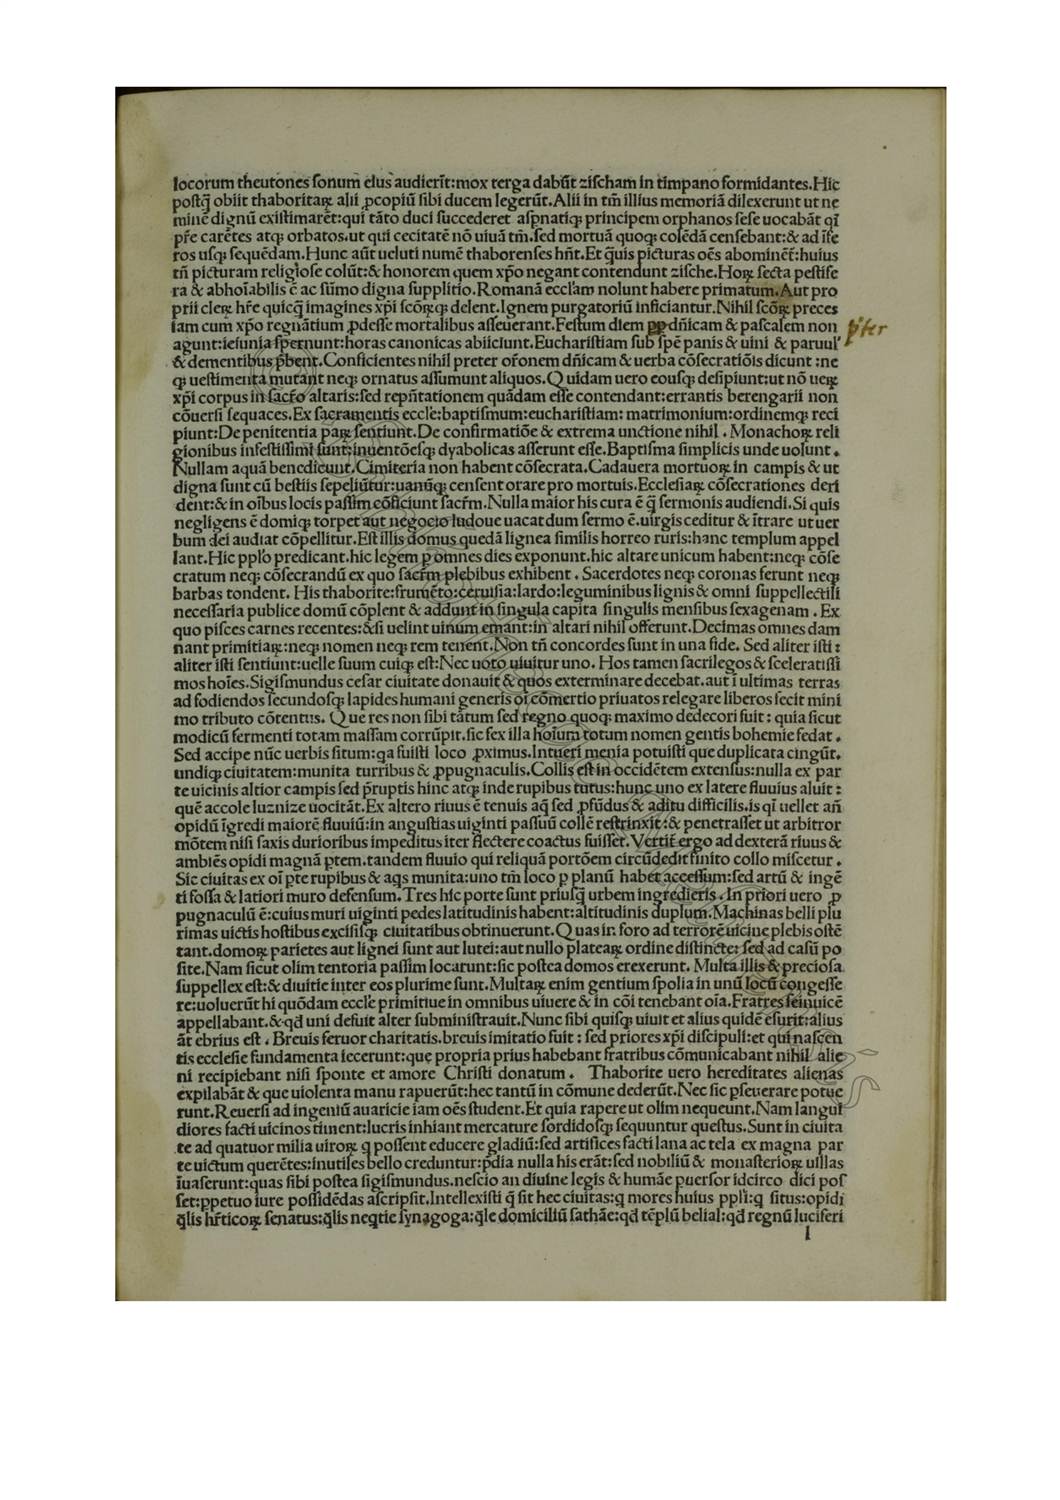 locorum theutones sonum eius audierīt:mox terga dabūt zischam in timpano formidantes.Hic
postq̄ obiit thaboritaꝝ alii ꝓcopiū sibi ducem legerūt.Alii in tm̄ illius memoriā dilexerunt ut ne
minē dignū existimarēt:qui tāto duci succederet aspnatiqꝫ principem orphanos sese uocabāt qī
pr̄e carētes atqꝫ orbatos.ut qui cecitatē nō uiuā tm̄.sed mortuā quoqꝫ colēdā censebant:& ad īfe
ros usqꝫ sequēdam.Hunc aūt ueluti numē thaborenses hn̄t.Et q̄uis picturas oēs abominēt̄:huius
tn̄ picturam religiose colūt:& honorem quem xp̄o negant contendunt zische.Hoꝝ secta pestife
ra & abhoīabilis ē ac sūmo digna supplitio.Romanā eccl̄am nolunt habere primatum.Aut pro
prii cleꝝ hr̄e quicq̄ imagines xp̄i scōꝝqꝫ delent.Ignem purgatoriū inficiantur.Nihil scōꝝ preces
iam cum xp̄o regnātium ꝓdesse mortalibus asseuerant.Festum diem ꝓp̄ dn̄icam & pascalem non p̄ter
agunt:ieiunia spernunt:horas canonicas abiiciunt.Euchariſtiam sub spē panis & uini & paruul'
& dementibus p̄bent.Conficientes nihil preter or̄onem dn̄icam & uerba cōsecratiōis dicunt :ne
qꝫ uestimenta mutant neqꝫ ornatus assumunt aliquos.Quidam uero eousqꝫ desipiunt:ut nō ueꝝ
xp̄i corpus in sacr̄o altaris:sed repn̄tationem quādam esse contendant:errantis berengarii non
cōuersi sequaces.Ex sacramentis eccl̄e:baptismum:eucharistiam: matrimonium:ordinemqꝫ reci
piunt:De penitentia paꝝ sentiunt.De confirmatiōe & extrema unctione nihil . Monachoꝝ reli
gionibus infestissimi sunt:inuentōesqꝫ dyabolicas asserunt esse.Baptisma simplicis unde uolunt .
Nullam aquā benedicunt.Cimiteria non habent cōsecrata.Cadauera mortuoꝝ in campis & ut
digna sunt cū bestiis sepeliūtur:uanūqꝫ censent orare pro mortuis.Ecclesiaꝝ cōsecrationes deri
dent:& in oībus locis passim cōficiunt sacr̄m.Nulla maior his cura ē q̄ sermonis audiendi.Si quis
negligens ē domiqꝫ torpet aut negocio ludoue uacat dum sermo ē.uirgis ceditur & ītrare ut uer
bum dei audiat cōpellitur.Est illis domus quedā lignea similis horreo ruris:hanc templum appel
lant.Hic ppl̄o predicant.hic legem p omnes dies exponunt.hic altare unicum habent:neqꝫ cōse
cratum neqꝫ cōsecrandū ex quo sacr̄m plebibus exhibent . Sacerdotes neqꝫ coronas ferunt neqꝫ
barbas tondent. His thaborite:frumēto:ceruisia:lardo:leguminibus lignis & omni suppellectili
necessaria publice domū cōplent & addunt in singula capita singulis mensibus sexagenam . Ex
quo pisces carnes recentes:& si uelint uinum emant:in altari nihil offerunt.Decimas omnes dam
nant primitiaꝝ:neqꝫ nomen neqꝫ rem tenent.Non tn̄ concordes sunt in una fide. Sed aliter isti :
aliter isti sentiunt:uelle suum cuiqꝫ est:Nec uoto uiuitur uno. Hos tamen sacrilegos & sceleratissi
mos hoīes.Sigismundus cesar ciuitate donauit & quos exterminare decebat.aut ī ultimas terras
ad fodiendos secundosqꝫ lapides humani generis oī cōmertio priuatos relegare liberos fecit mini
mo tributo cōtentus. Que res non sibi tātum sed regno quoqꝫ maximo dedecori fuit : quia sicut
modicū fermenti totam massam corrūpit.sic fex illa hoīum totum nomen gentis bohemie fedat .
Sed accipe nūc uerbis situm:qa fuisti loco ꝓximus.Intueri menia potuisti que duplicata cingūt.
undiqꝫ ciuitatem:munita turribus & ꝓpugnaculis.Collis est in occidētem extensus:nulla ex par
te uicinis altior campis sed p̄ruptis hinc atqꝫ inde rupibus tutus:hunc uno ex latere fluuius aluit :
quē accole luznize uocitāt.Ex altero riuus ē tenuis aq̄ sed ꝓfūdus & aditu difficilis.is qī uellet an̄
opidū īgredi maiorē fluuiū:in angustias uiginti passuū collē restrinxit:& penetrasset ut arbitror
mōtem nisi saxis durioribus impeditus iter flectere coactus fuisset.Vertit̄ ergo ad dexterā riuus &
ambiēs opidi magnā ꝑtem.tandem fluuio qui reliquā portōem circūdedit finito collo miscetur .
Sic ciuitas ex oī ꝑte rupibus & aqs munita:uno tm̄ loco p planū habet accessum:sed artū & ingē
ti fossa & latiori muro defensum. Tres hic porte sunt priusq̄ urbem ingredieris . In priori uero ꝓ
pugnaculū ē:cuius muri uiginti pedes latitudinis habent:altitudinis duplum.Machinas belli plu
rimas uictis hostibus excisisqꝫ ciuitatibus obtinuerunt.Quas in foro ad terrorē uicine plebis ostē
tant.domoꝝ parietes aut lignei sunt aut lutei:aut nullo plateaꝝ ordine distincte: sed ad casū po
site.Nam sicut olim tentoria passim locarunt:sic postea domos erexerunt. Multa illis & preciosa
suppellex est:& diuitie inter eos plurime sunt.Multaꝝ enim gentium spolia in unū locū congesse
re:uoluerūt hi quōdam eccl̄e primitiue in omnibus uiuere & in cōi tenebant oīa.Fratres seinuicē
appellabant.& qd̄ uni defuit alter subministrauit.Nunc sibi quisqꝫ uiuit et alius quidē esurit:alius
āt ebrius est . Breuis feruor charitatis.breuis imitatio fuit : sed priores xp̄i discipuli:et qui nascen
tis ecclesie fundamenta iecerunt:que propria prius habebant fratribus cōmunicabant nihil alie
ni recipiebant nisi sponte et amore Christi donatum . Thaborite uero hereditates alienas
expilabāt & que uiolenta manu rapuerūt:hec tantū in cōmune dederūt.Nec sic ꝑseuerare potue
runt.Reuersi ad ingeniū auaricie iam oēs student.Et quia rapere ut olim nequeunt.Nam langui
diores facti uicinos timent:lucris inhiant mercature sordidosqꝫ sequuntur questus.Sunt in ciuita
te ad quatuor milia uiroꝝ q possent educere gladiū:sed artifices facti lana ac tela ex magna par
te uictum querētes:inutiles bello creduntur:p̄dia nulla his erāt:sed nobiliū & monasterioꝝ uillas
īuaserunt:quas sibi postea sigismundus.nescio an diuine legis & humāe ꝑuersor idcirco dici pos
set:ꝑpetuo iure possidēdas ascripsit.Intellexisti q̄ sit hec ciuitas:q mores huius ppl̄i:q situs:opidi
q̄lis hr̄ticoꝝ senatus:q̄lis neq̄tie synagoga:q̄le domiciliū sathāe:qd̄ tēplū belial:qd̄ regnū luciferi
l